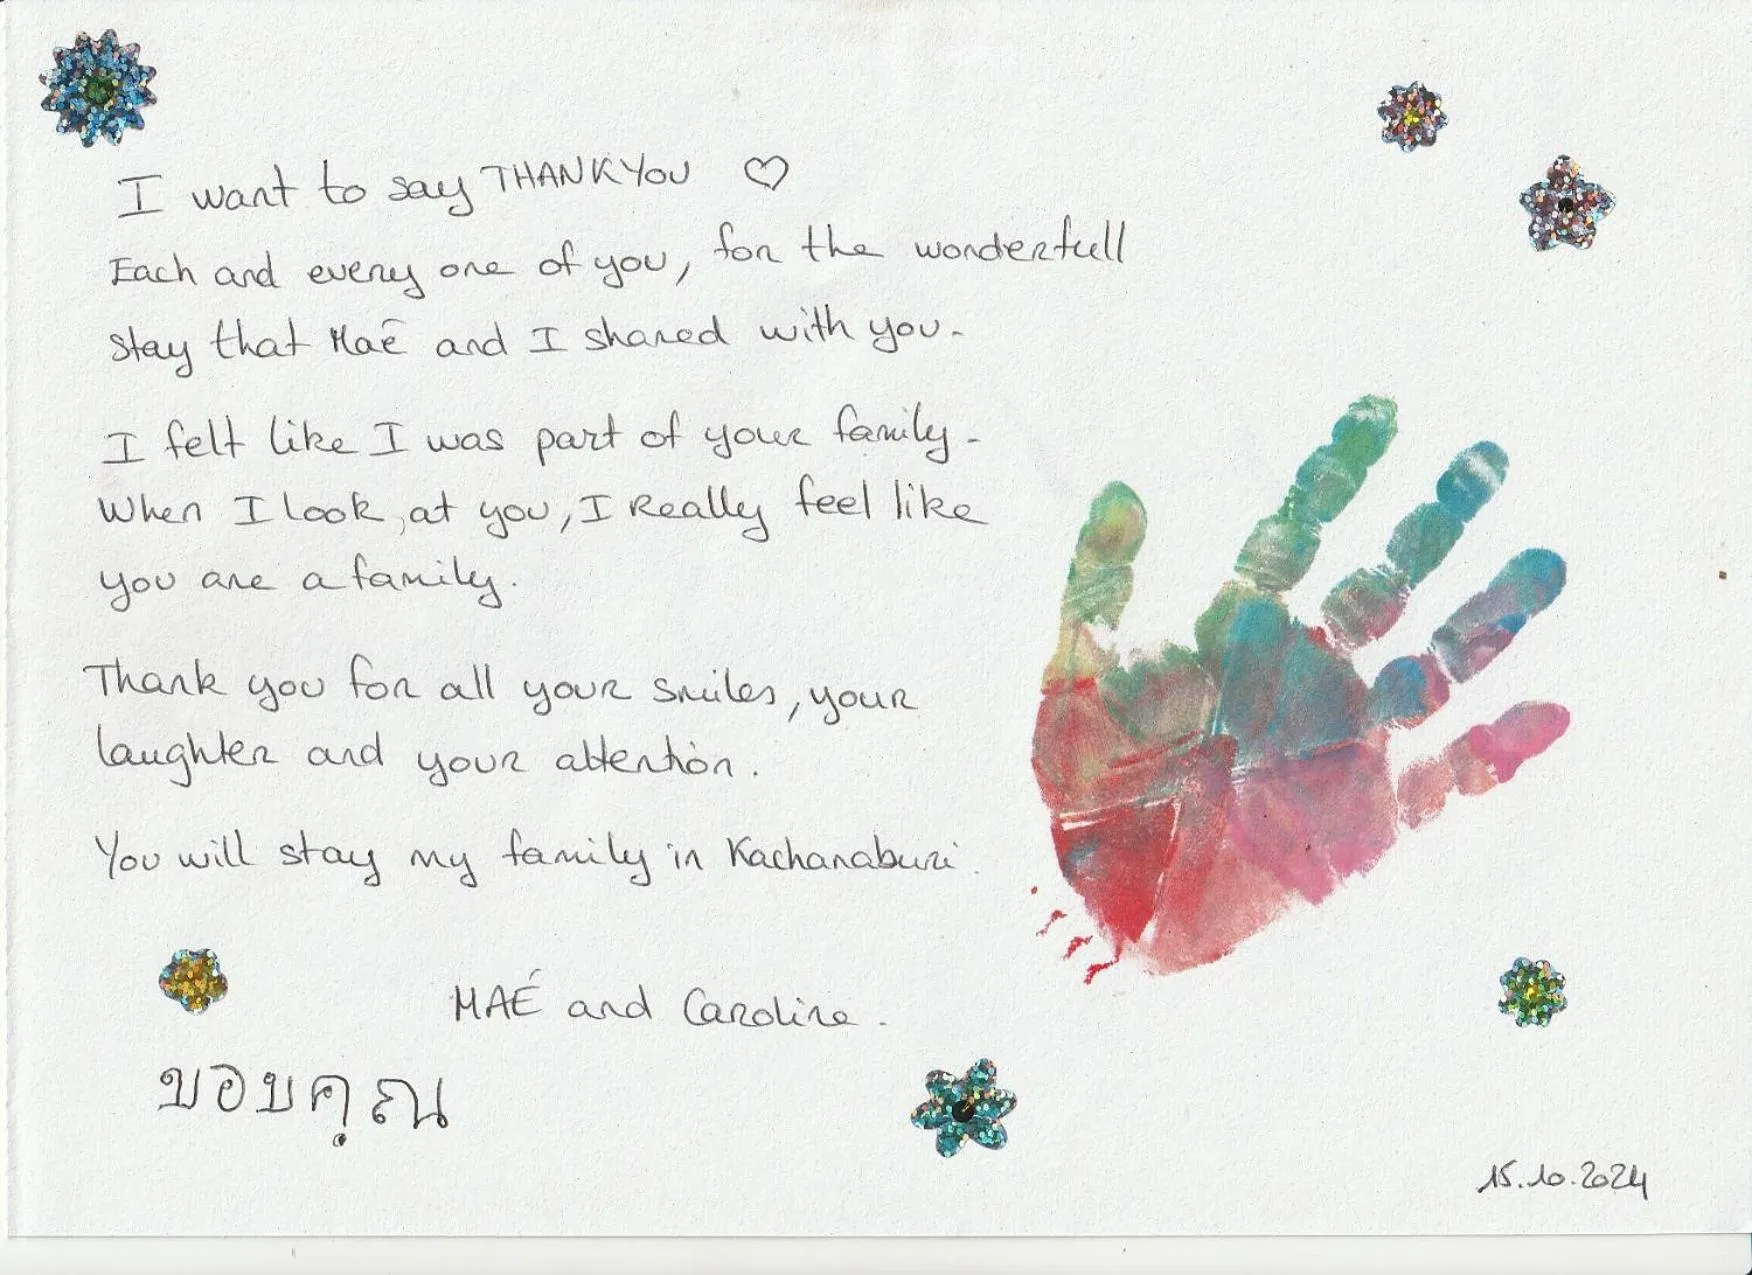 I want to say THANK YOU ♡
Each and every one of you, for the wonderfull
stay that Maé and I shared with you.
I felt like I was part of your family.
When I look, at you, I Really feel like
you are a family.
Thank you for all your smiles, your
laughter and your attention.
You will stay my family in Kachanaburi.
MAÉ and Caroline.
ขอบคุณ
15.10.2024